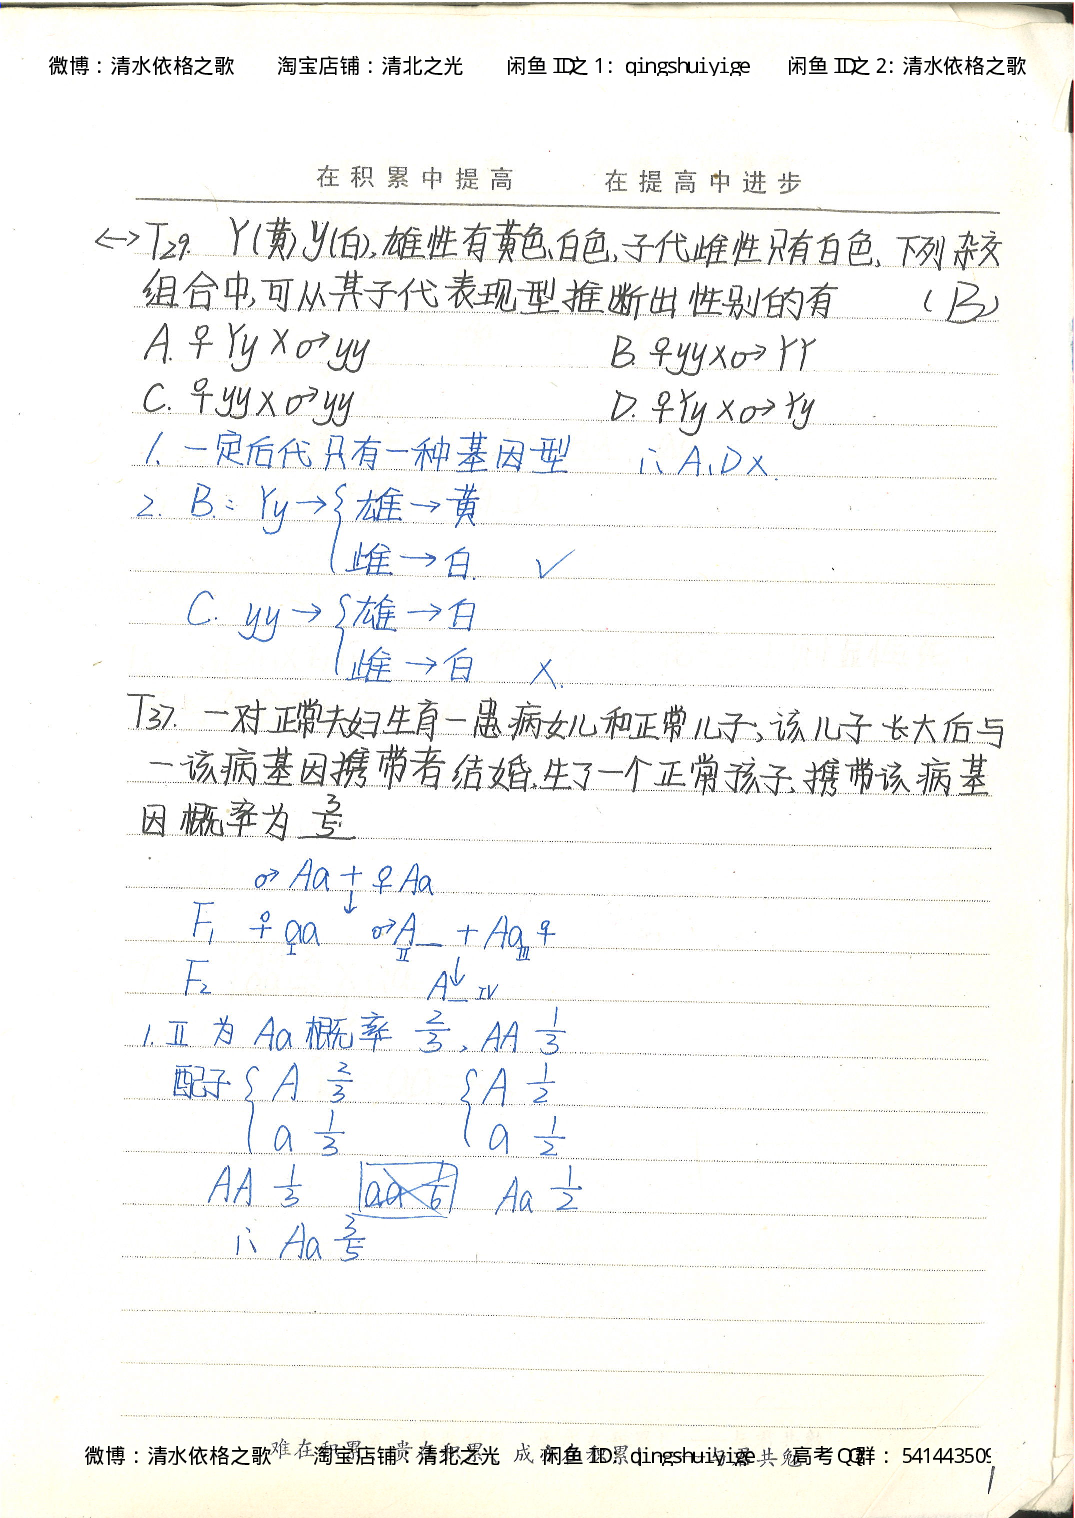 微博：清水依格之歌 淘宝店铺：清北之光 闲鱼 ID 之 1：qingshuiyige 闲鱼 ID 之 2：清水依格之歌
在积累中提高 在提高中进步
<-> T29. Y(黄)y(白),雄性有黄色、白色,子代雌性只有白色,下列杂交
组合中,可从其子代表现型推断出性别的有 (B)
A. ♀Yy×♂yy B. ♀yy×♂YY
C. ♀yy×♂yy D. ♀Yy×♂Yy
1. 一定后代只有一种基因型 ∴A、D×.
2. B: Yy→{雄→黄
雌→白. √
C. yy→{雄→白
雌→白 ×.
T37. 一对正常夫妇生育一患病女儿和正常儿子;该儿子长大后与
一该病基因携带者结婚,生了一个正常孩子,携带该病基
因概率为 3/5
♂Aa+♀Aa
↓
F₁ ♀aa I ♂A_ II + Aa♀ III
↓
F₂ A_ IV
1. II为Aa概率 2/3, AA 1/3
配子{A 2/3 {A 1/2
a 1/3 a 1/2
AA 1/3 aa 1/6 Aa 1/2
∴ Aa 3/5
微博：清水依格之歌 淘宝店铺：清北之光 闲鱼 ID：qingshuiyige 高考 QQ 群：541443509
1